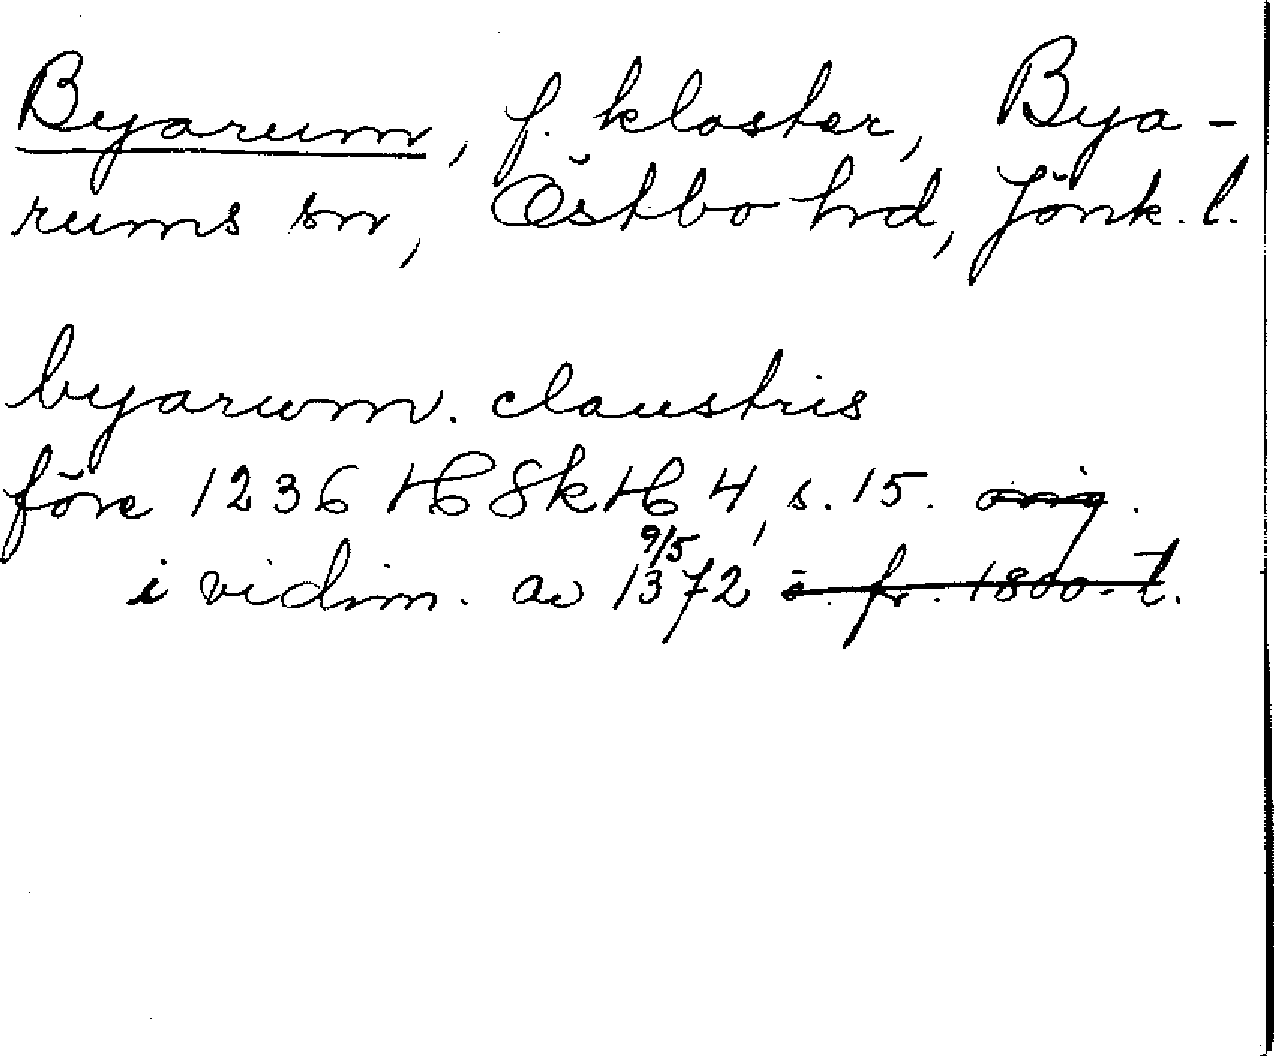 Byarum, f. kloster, Bya-
rums sn, Östbo hrd, Jönk. l.
byarum. claustris
före 1236 HSkH 4, s. 15. orig.
i vidim. av 9/5 1372 ö. fr. 1800-t.